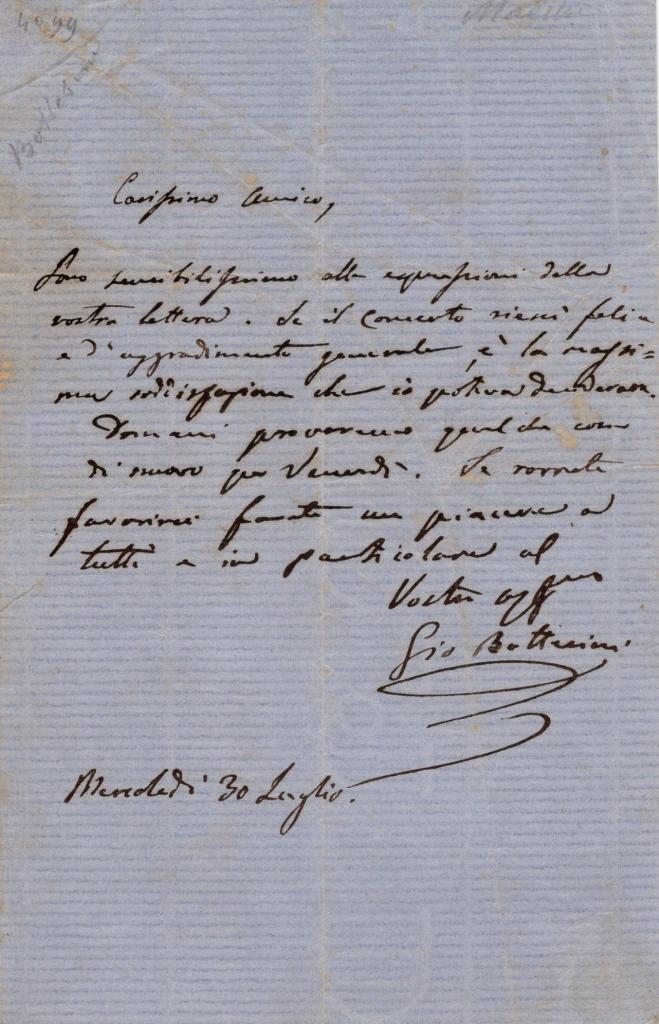 4099
Bottesini
Maestro
Carissimo Amico,
Sono sensibilissimo alle espressioni della
vostra lettera. Se il Concerto riescì felice
e d'aggradimento generale, è la massi=
ma soddisfazione che io poteva desiderare.
Domani proveremo qualche cosa
di nuovo per Venerdì. Se vorrete
favorirci farete un piacere a
tutti e in particolare al
Vostro affmo
Gio Bottesini
Mercoledì 30 Luglio.